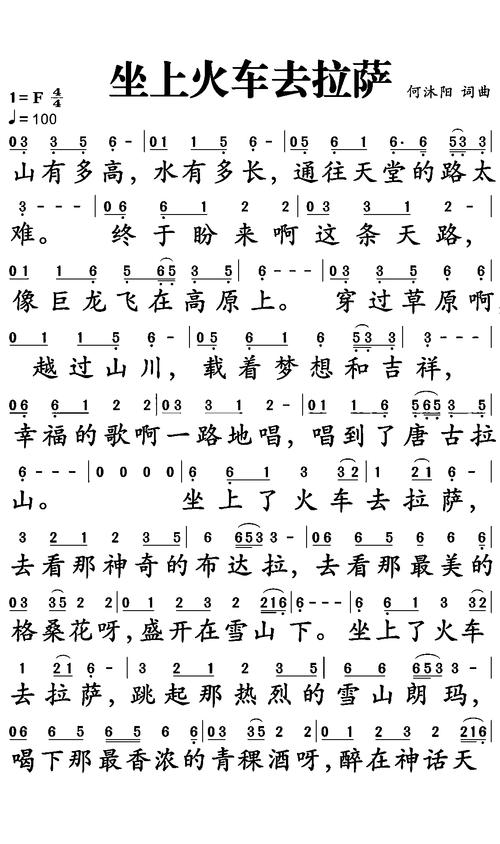 坐上火车去拉萨
何沐阳 词曲
1=F 4/4
♩=100
03 3 5 6 - | 01 1 5 6 - | 05 6 1 6· 6 53 3 |
山有多高，水有多长，通往天堂的路太
3 - - - | 02 6 1 2 2 | 03 3 1 2 - |
难。 终于盼来啊这条天路，
01 1 6 5 65 3 5 | 6 - - - | 03 3 5 6 - |
像巨龙飞在高原上。 穿过草原啊，
0 1 1 5 6 - | 05 6 1 6 53 3 | 3 - - - |
越过山川，载着梦想和吉祥，
02 6 1 2 2 | 03 3 1 2 - | 01 1 6 565 3 5 |
幸福的歌啊一路地唱，唱到了唐古拉
6 - - - | 0 0 0 0 | 6 6 1 3 32 | 1 21 6 - |
山。 坐上了火车去拉萨，
3 2 1 2 3 5 | 6 6 653 3 - | 06 6 5 6 6 |
去看那神奇的布达拉，去看那最美的
03 35 2 2 | 0 1 2 3 2 216 | 6 - - - | 6 6 1 3 32 |
格桑花呀，盛开在雪山下。坐上了火车
1 21 6 - | 3 2 1 2 3 5 | 6 6 653 3 - |
去拉萨，跳起那热烈的雪山朗玛，
06 6 5 6 6 5 | 03 35 2 2 | 0 1 2 3 2 216 |
喝下那最香浓的青稞酒呀，醉在神话天